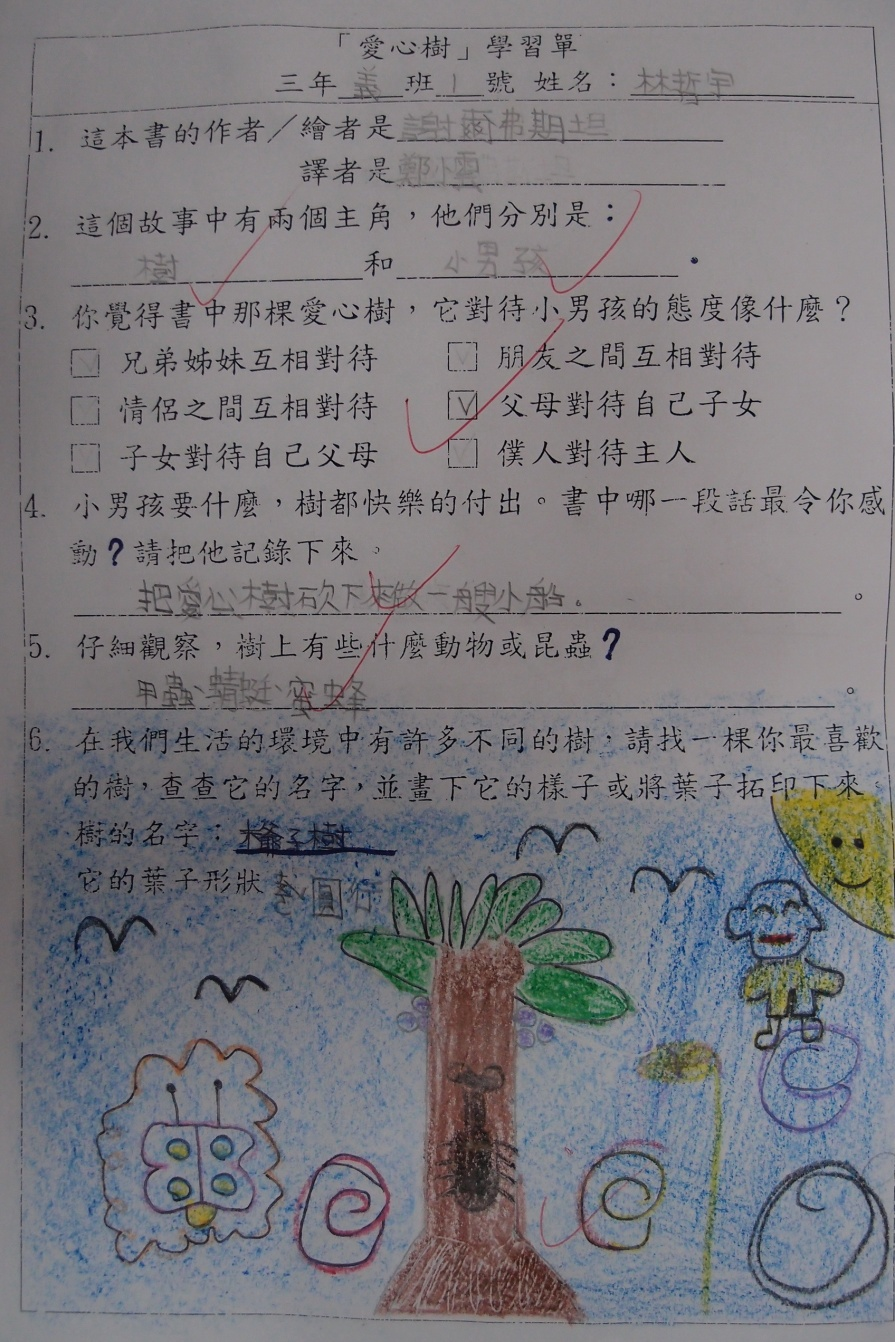 「愛心樹」學習單
三年義班1號 姓名：林哲宇
1. 這本書的作者／繪者是謝爾弗斯坦
譯者是鄭小雲
2. 這個故事中有兩個主角，他們分別是：
樹和小男孩。
3. 你覺得書中那棵愛心樹，它對待小男孩的態度像什麼？
兄弟姊妹互相對待 朋友之間互相對待
情侶之間互相對待 V 父母對待自己子女
子女對待自己父母 僕人對待主人
4. 小男孩要什麼，樹都快樂的付出。書中哪一段話最令你感
動？請把他記錄下來。
把愛心樹砍下來做一艘小船。。
5. 仔細觀察，樹上有些什麼動物或昆蟲？
甲蟲、蜻蜓、蜜蜂。
6. 在我們生活的環境中有許多不同的樹，請找一棵你最喜歡
的樹，查查它的名字，並畫下它的樣子或將葉子拓印下來
樹的名字：椰子樹
它的葉子形狀